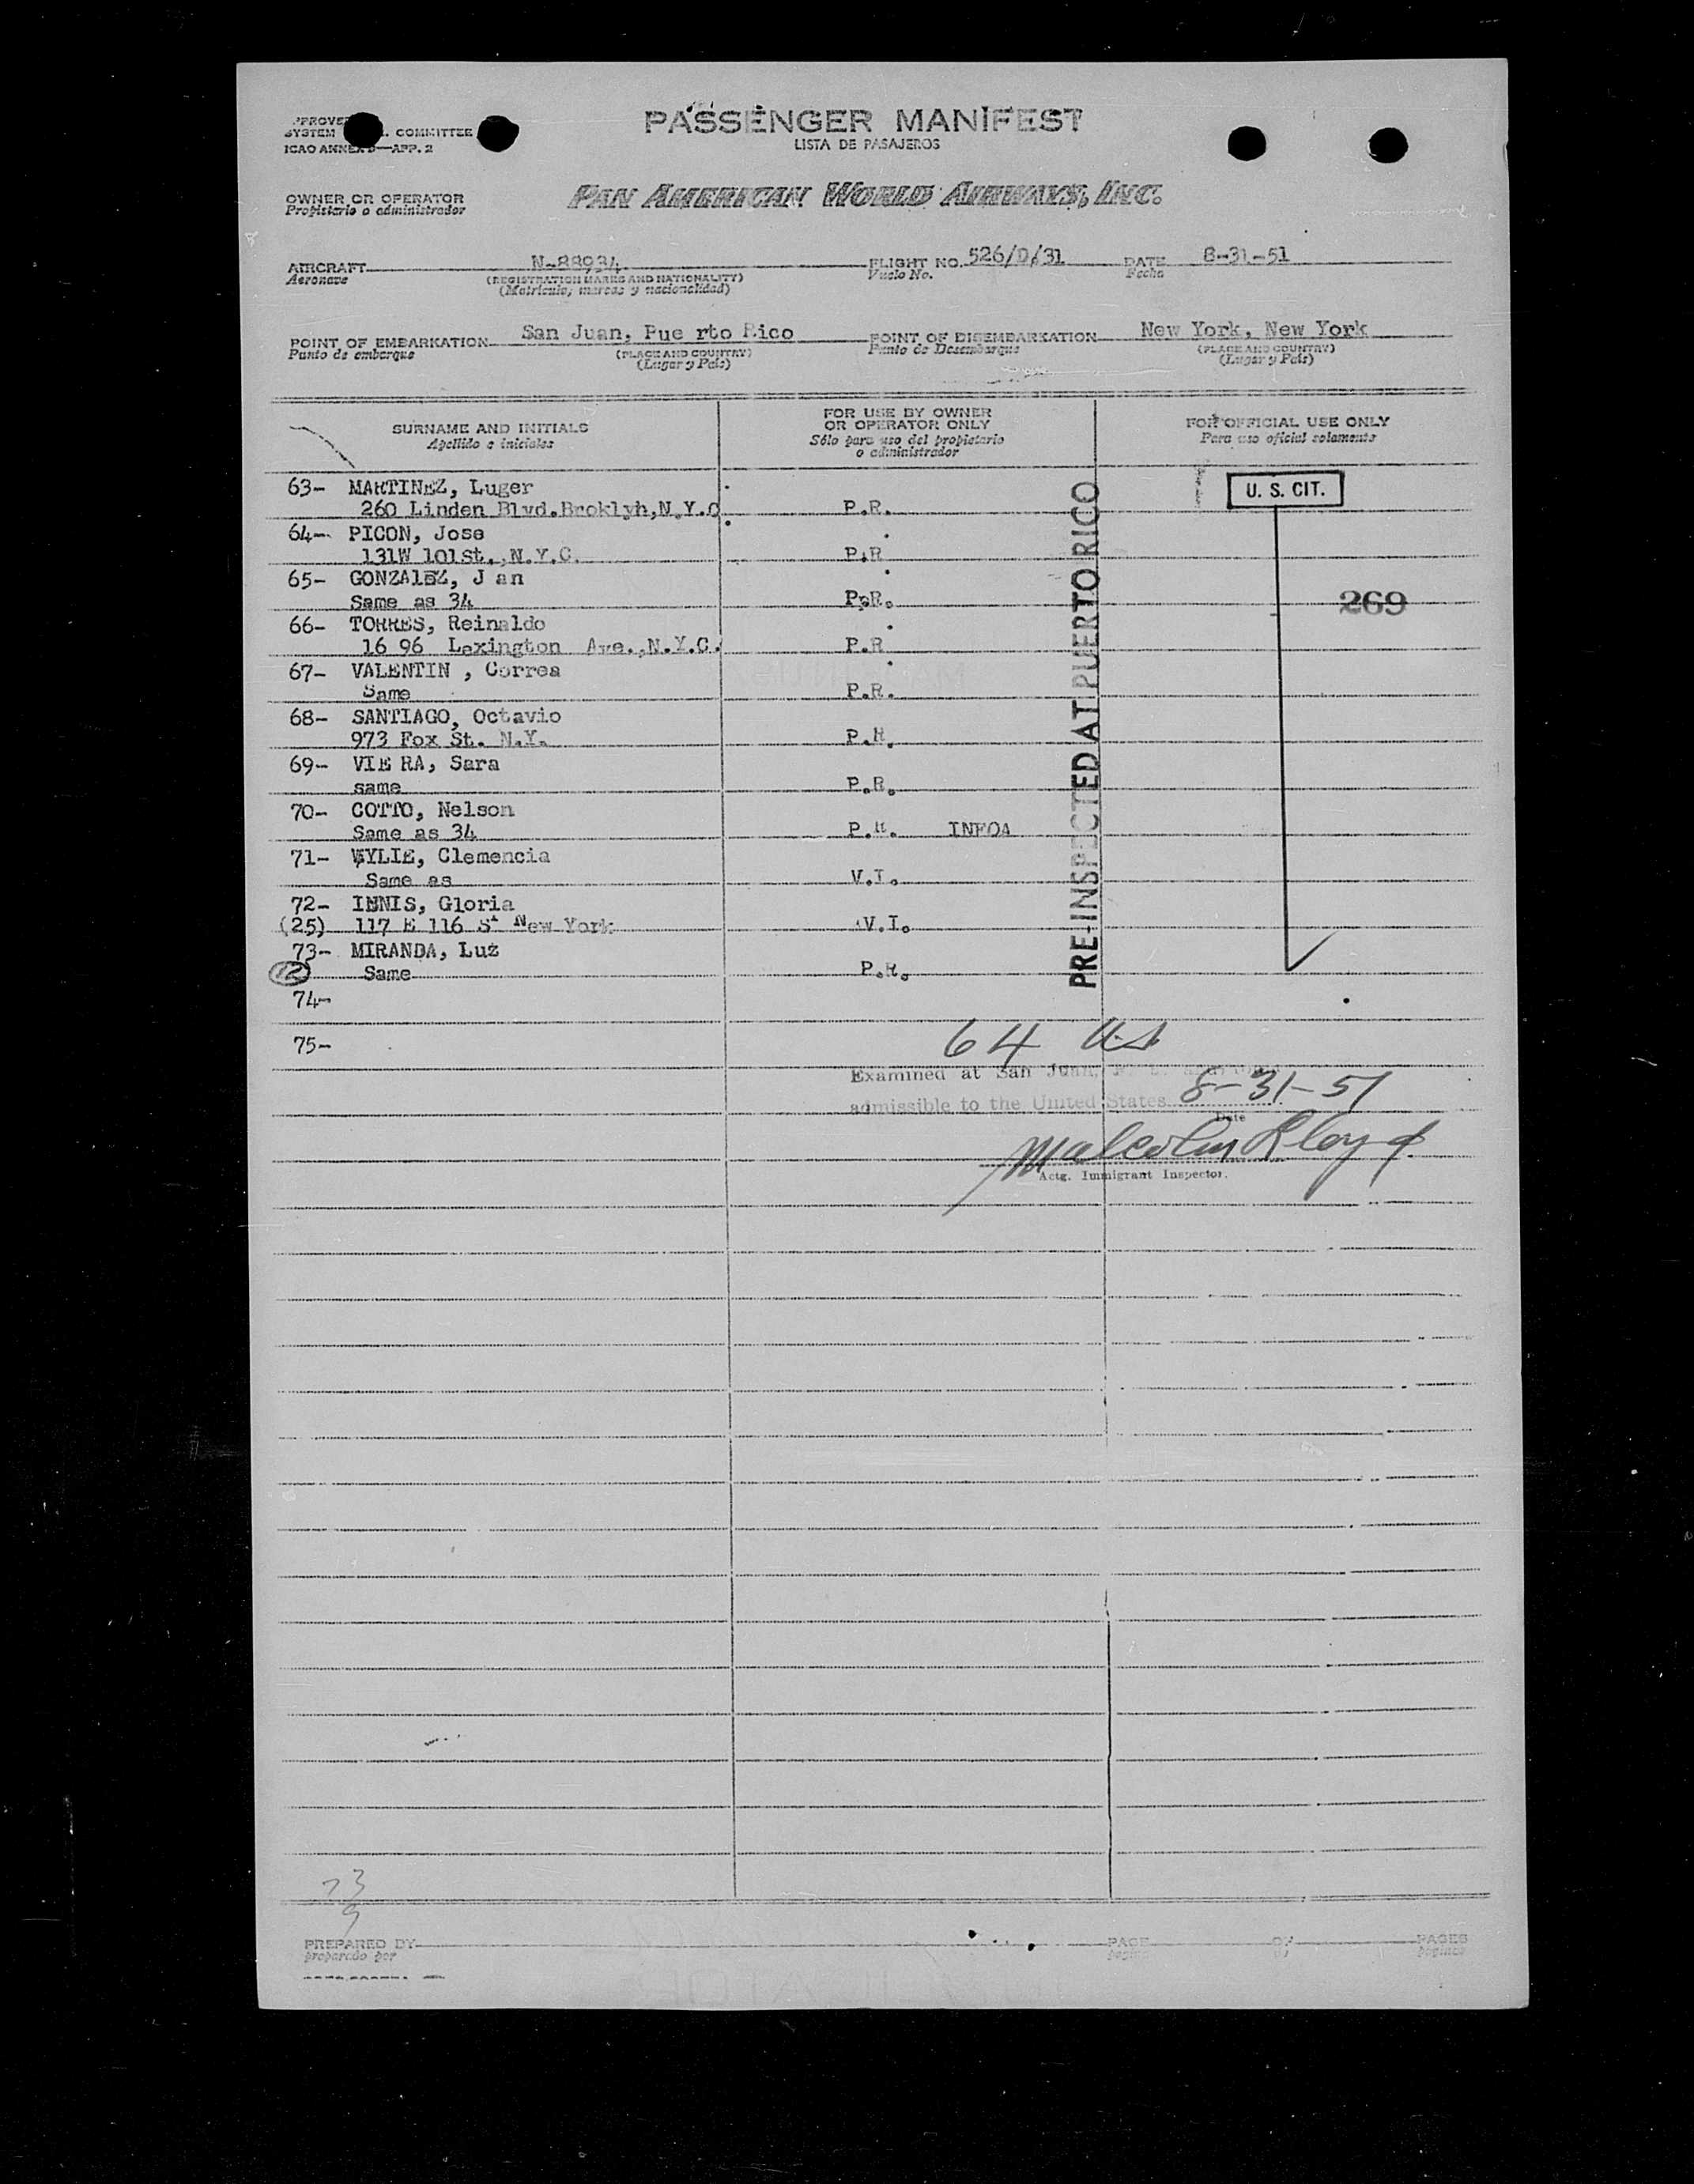 PASSENGER MANIFEST
LISTA DE PASAJEROS
SYSTEM COMMITTEE
ICAO ANNEX 9—APP. 2
OWNER OR OPERATOR
Propietario o administrador
PAN AMERICAN WORLD AIRWAYS, INC.
AIRCRAFT N-88934 FLIGHT NO. 526/D/31 DATE 8-31-51
Aeronave (REGISTRATION MARKS AND NATIONALITY) Vuelo No. Fecha
(Matricula, marcas y nacionalidad)
POINT OF EMBARKATION San Juan, Pue rto Rico POINT OF DISEMBARKATION New York, New York
Punto de embarque (PLACE AND COUNTRY) Punto de Desembarque (PLACE AND COUNTRY)
(Lugar y Pais) (Lugar y Pais)
SURNAME AND INITIALS FOR USE BY OWNER OR OPERATOR ONLY FOR OFFICIAL USE ONLY
Apellido e iniciales Sólo para uso del propietario o administrador Para uso oficial solamente
63- MARTINEZ, Luger U. S. CIT.
260 Linden Blvd.Broklyh,N.Y.C P.R.
64- PICON, Jose
131W 101st.,N.Y.C. P.R
65- GONZAlEZ, J an
Same as 34 P.R. 269
66- TORRES, Reinaldo
16 96 Lexington Ave.,N.Y.C. P.R
67- VALENTIN , Correa
Same P.R.
68- SANTIAGO, Octavio
973 Fox St. N.Y. P.R.
69- VIE RA, Sara
same P.R.
70- COTTO, Nelson
Same as 34 P.R. INFOA
71- WYLIE, Clemencia
Same as V.I.
72- INNIS, Gloria
(25) 117 E 116 St New York V.I.
73- MIRANDA, Luz
12 Same P.R.
PRE-INSPECTED AT PUERTO RICO
74-
75-
64 US
Examined at San Juan, P. R.
admissible to the United States 8-31-51
Date
Malcolm Lloyd
Actg. Immigrant Inspector.
73
9
PREPARED BY PAGE OF PAGES
preparado por pagina paginas